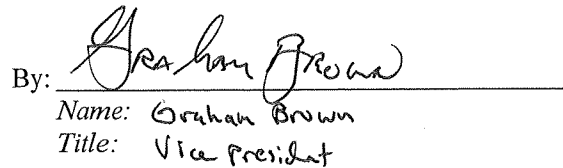 By: Graham Brown
Name: Graham Brown
Title: Vice President